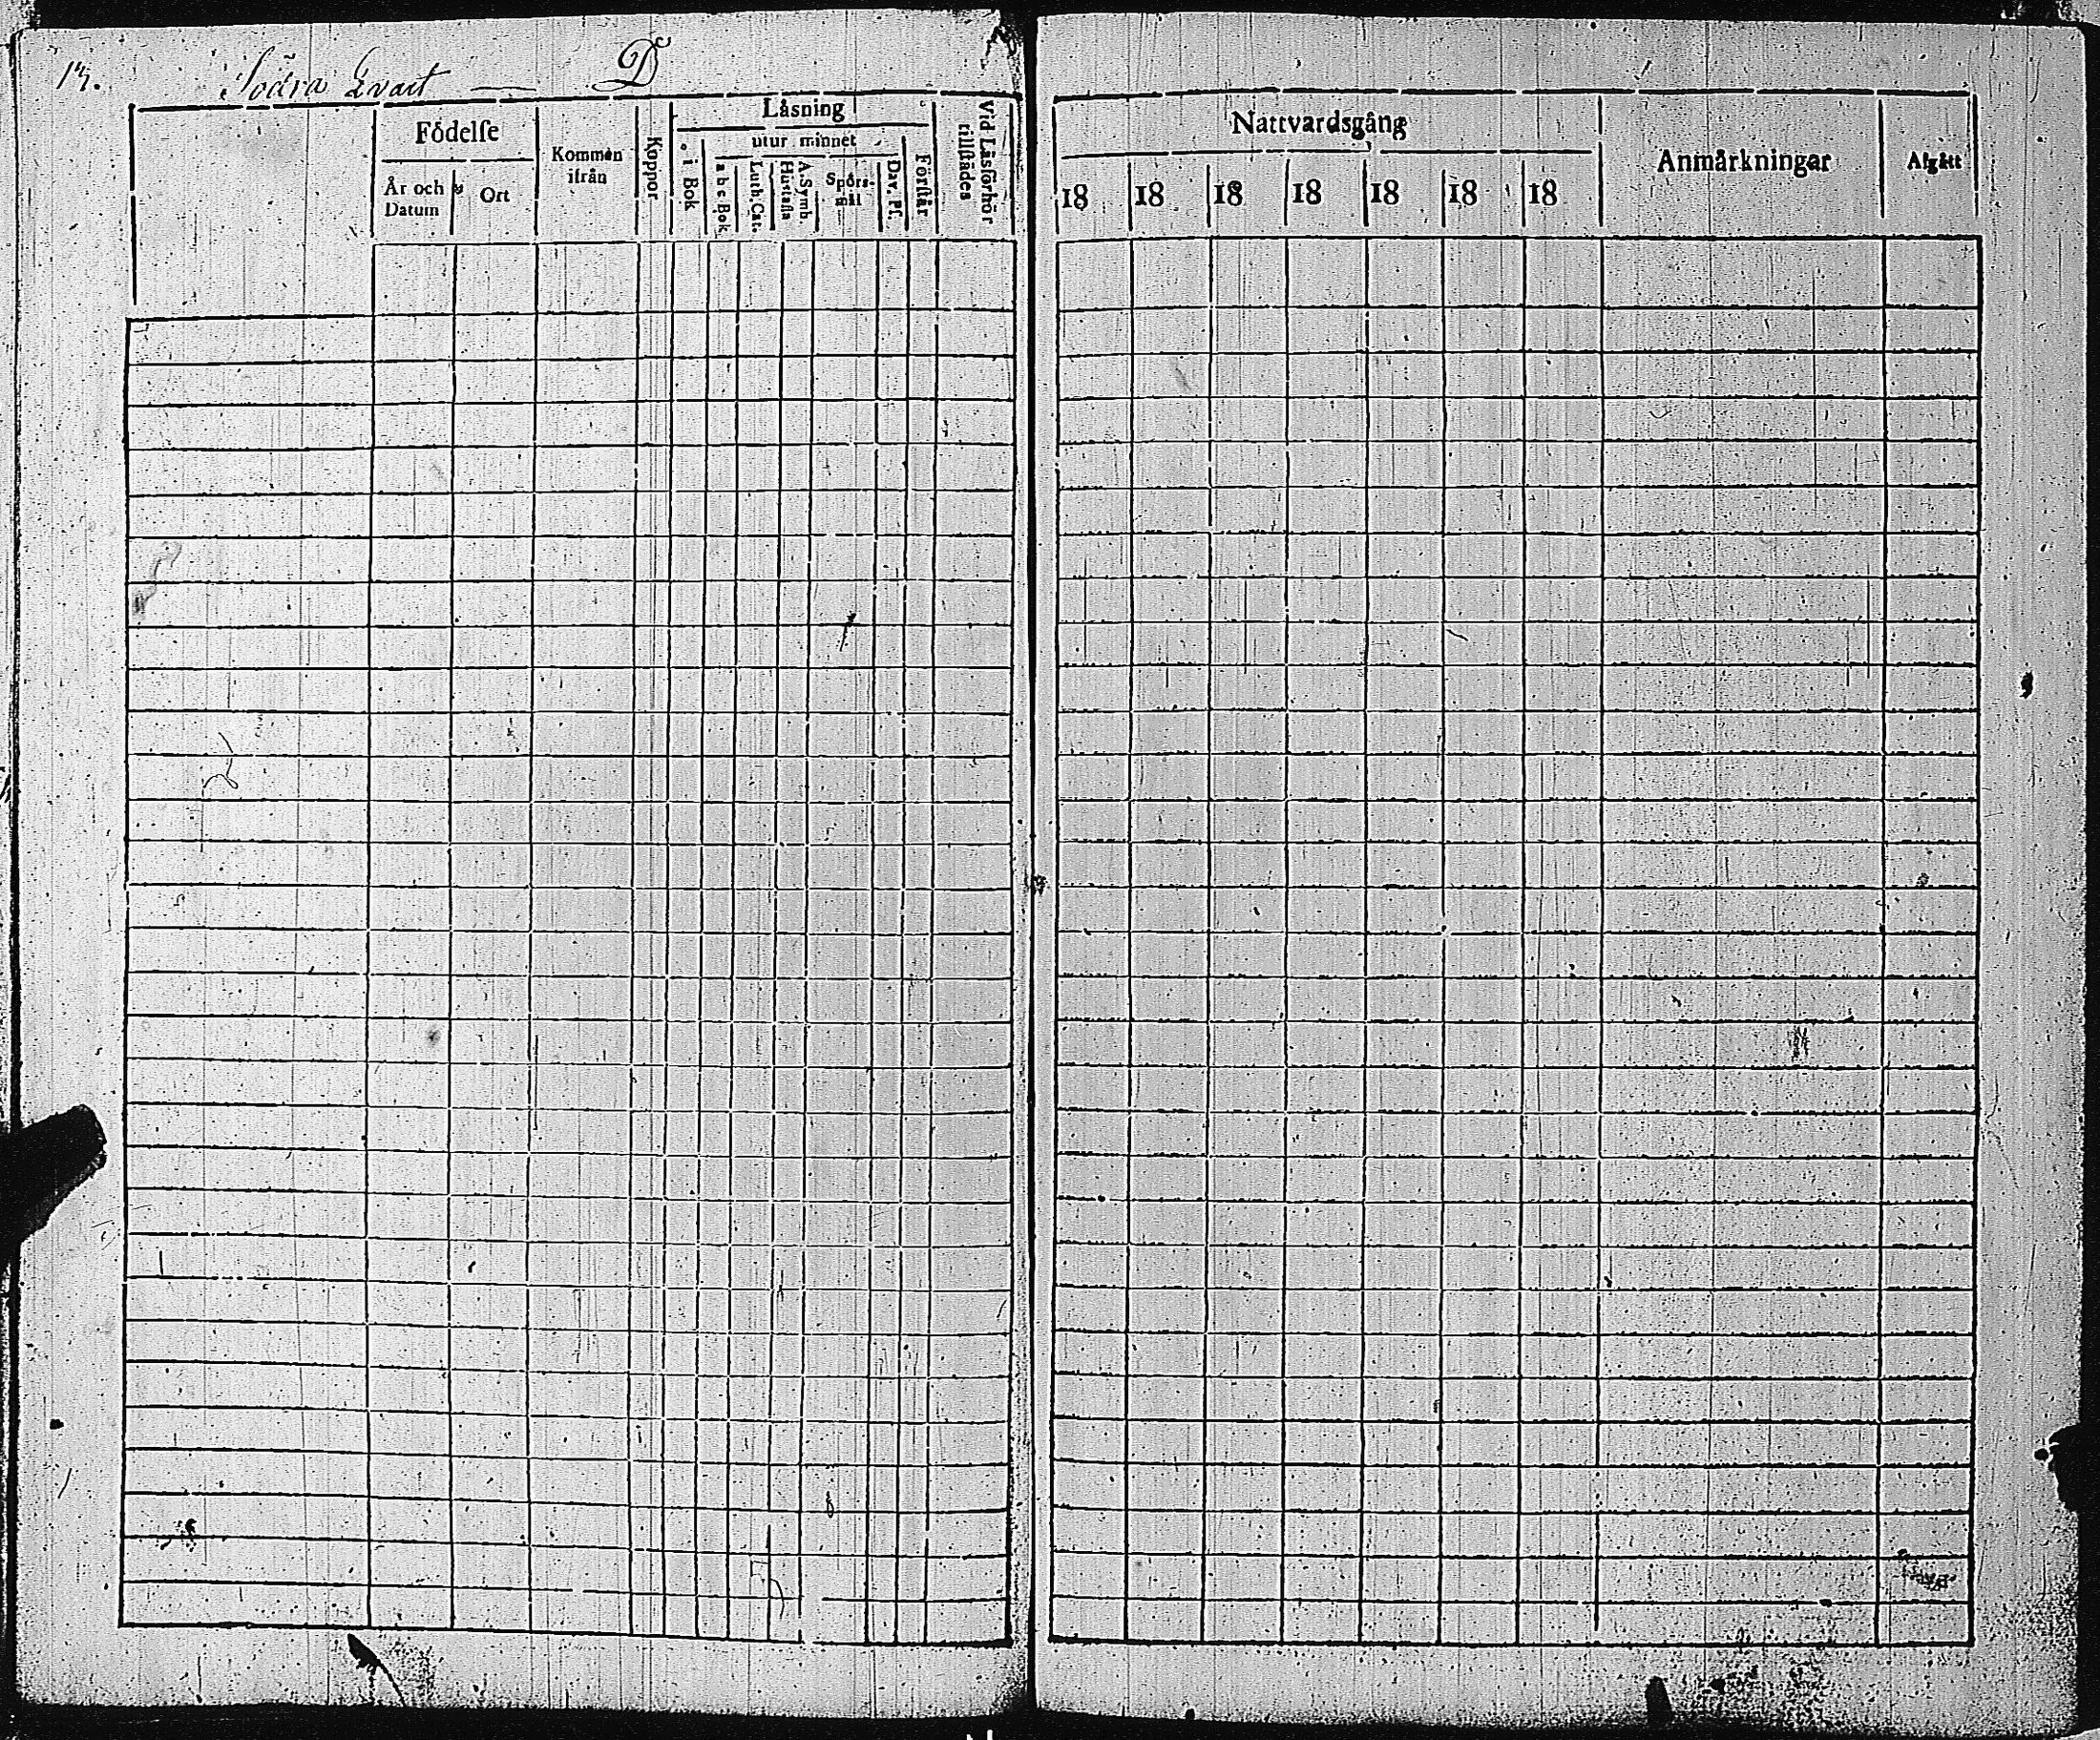 13. Södra Qvart — D
Födelse
År och Datum
Ort
Kommen ifrån
Koppor
Läsning
utur minnet
i Bok
a b c Bok
Luth. Cat.
Hustafla
A. Symb.
Spörs-mål
Dav. Ps.
Förstår
Vid Läsförhör tillstädes
Nattvardsgång
18 18 18 18 18 18 18
Anmärkningar
Afgått